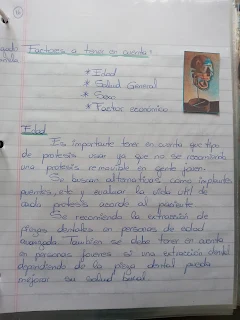 Factores a tener en cuenta:
* Edad
* Salud General
* Sexo
* Factor económico.
Edad
Es importante tener en cuenta que tipo
de protesis usar ya que no se recomienda
una protesis removible en gente joven.
Se buscan alternativas como implantes
puentes, etc y evaluar la vida util de
cada protesis acorde al paciente
Se recomienda la extracción de
piezas dentales en personas de edad
avanzada. Tambien se debe tener en cuenta
en personas jovenes si una extracción dental
dependiendo de la pieza dental pueda
mejorar su salud bucal.